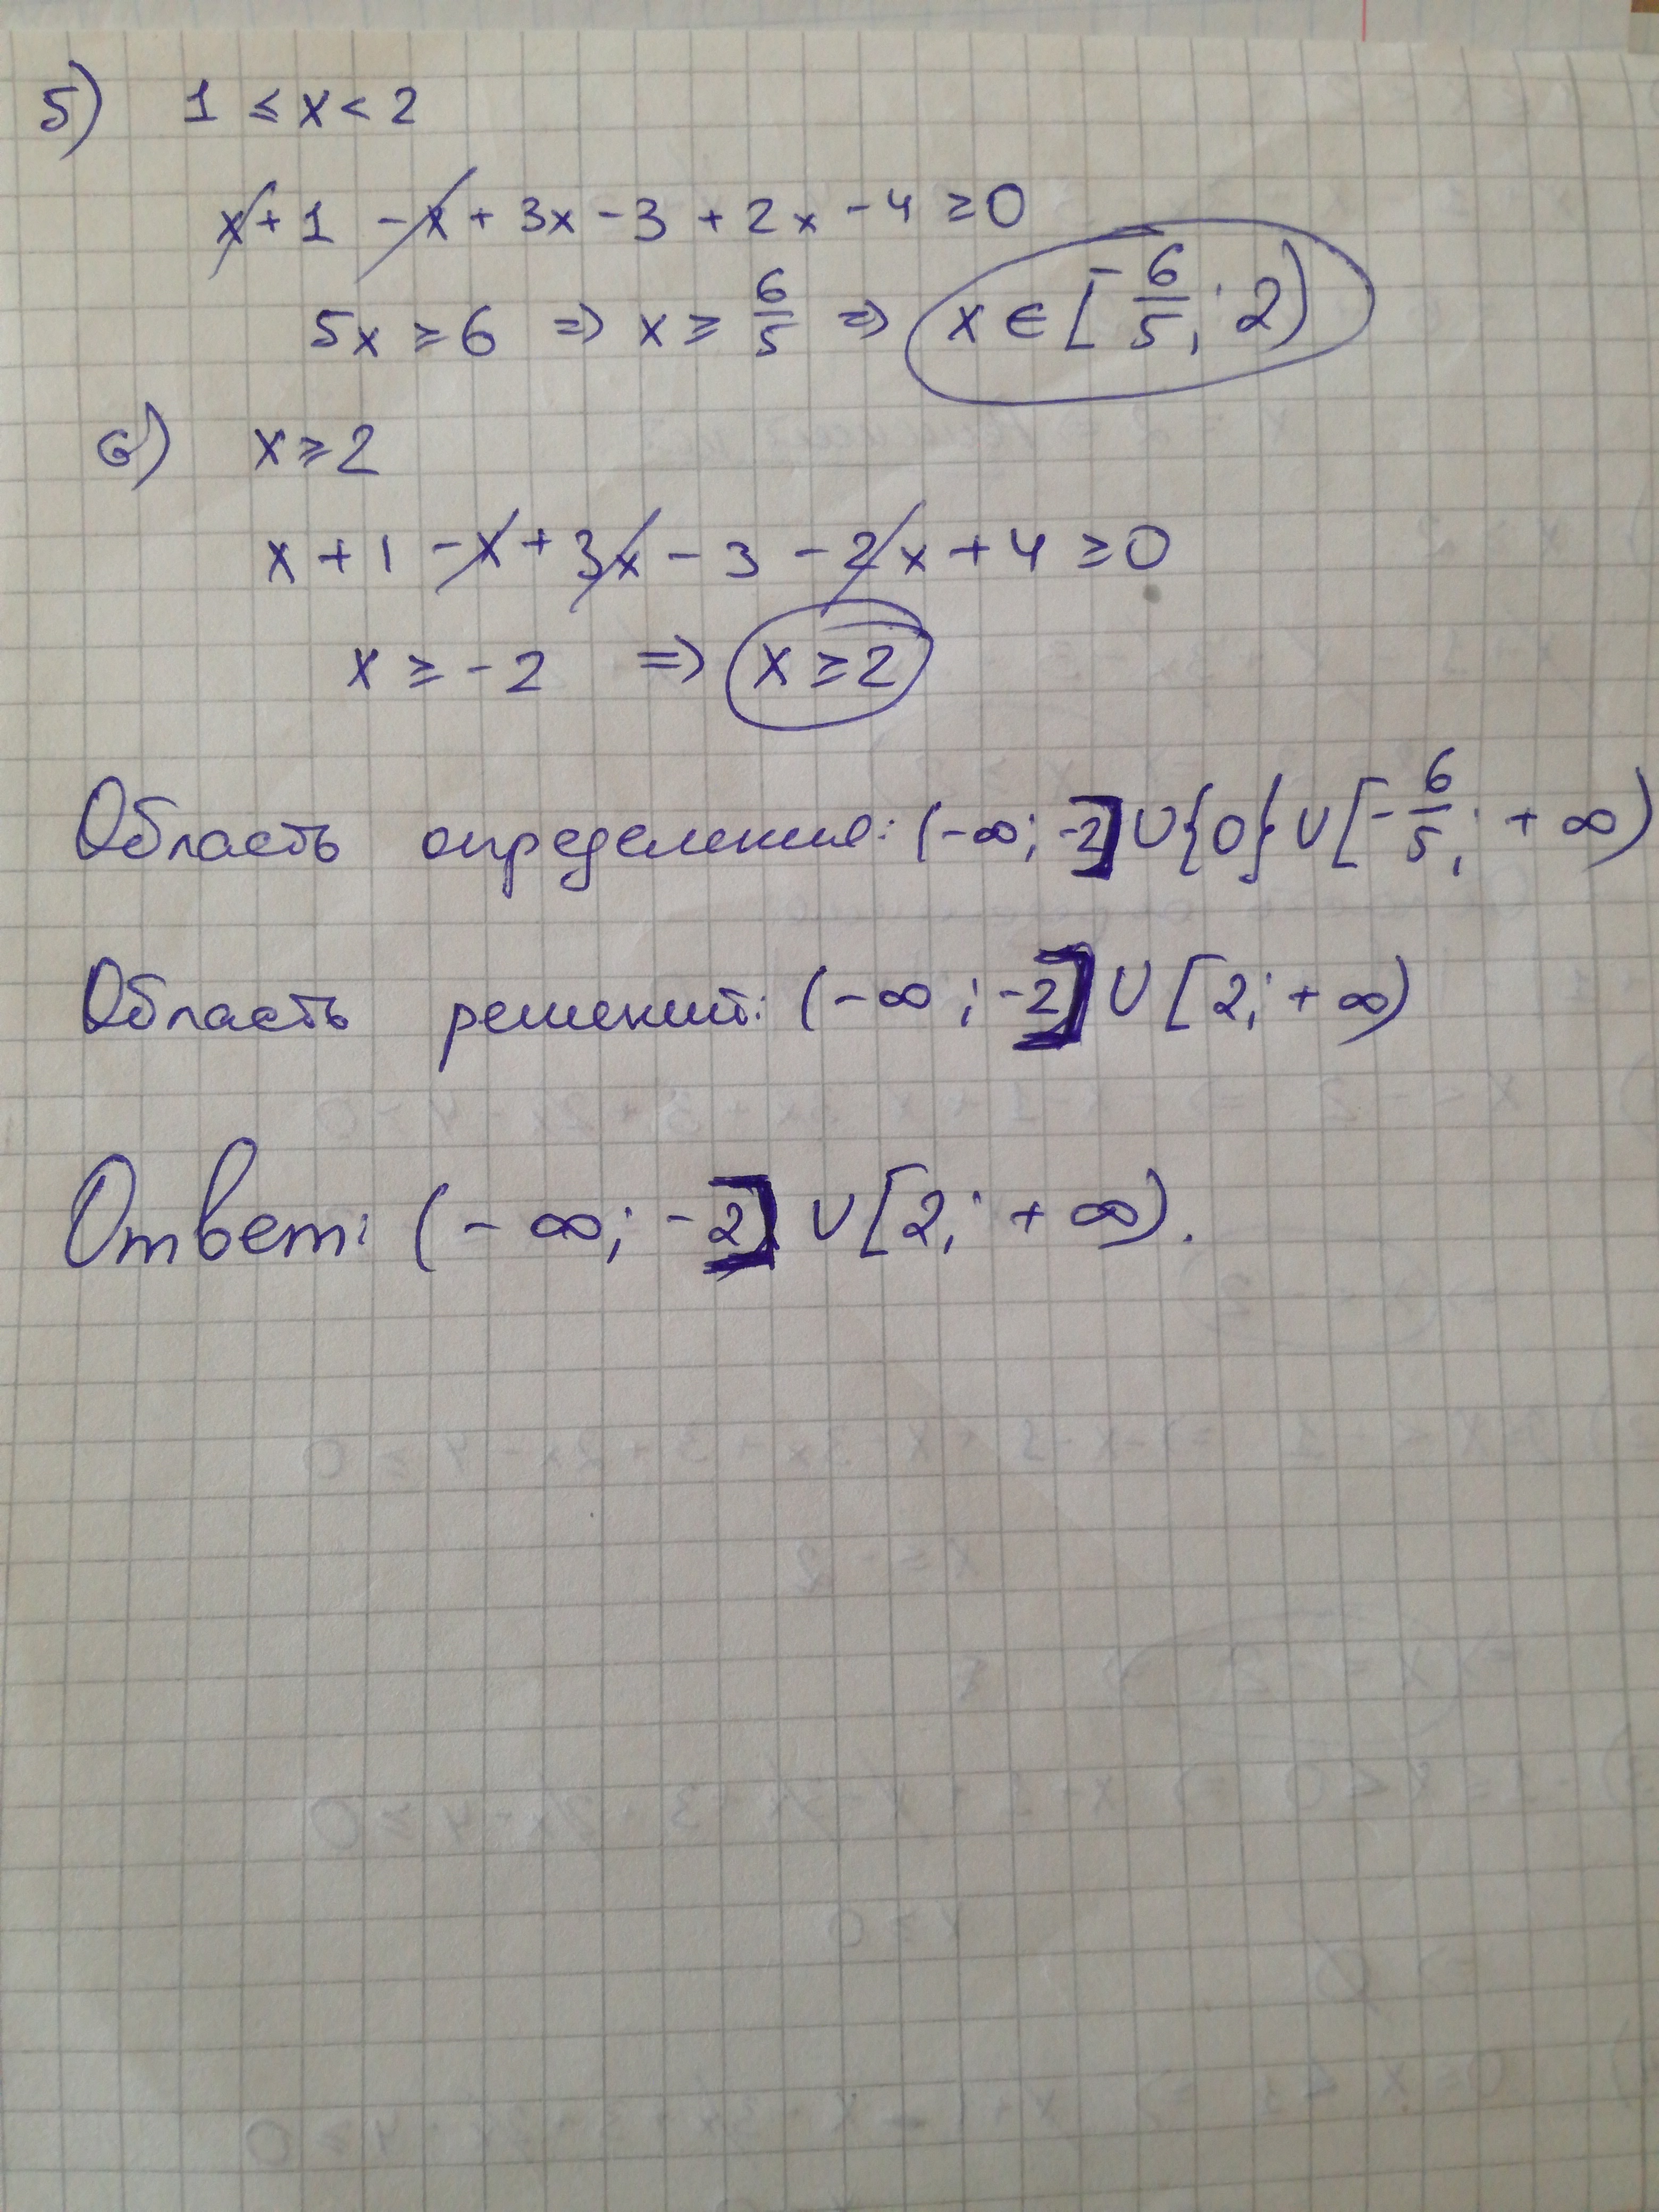 5) 1 ≤ x < 2
x + 1 - x + 3x - 3 + 2x - 4 ≥ 0
5x ≥ 6 ⇒ x ≥ 6/5 ⇒ x ∈ [-6/5; 2)
6) x ≥ 2
x + 1 - x + 3x - 3 - 2x + 4 ≥ 0
x ≥ -2 ⇒ x ≥ 2
Область определения: (-∞; -2] ∪ {0} ∪ [-6/5; +∞)
Область решений: (-∞; -2] ∪ [2; +∞)
Ответ: (-∞; -2] ∪ [2; +∞).